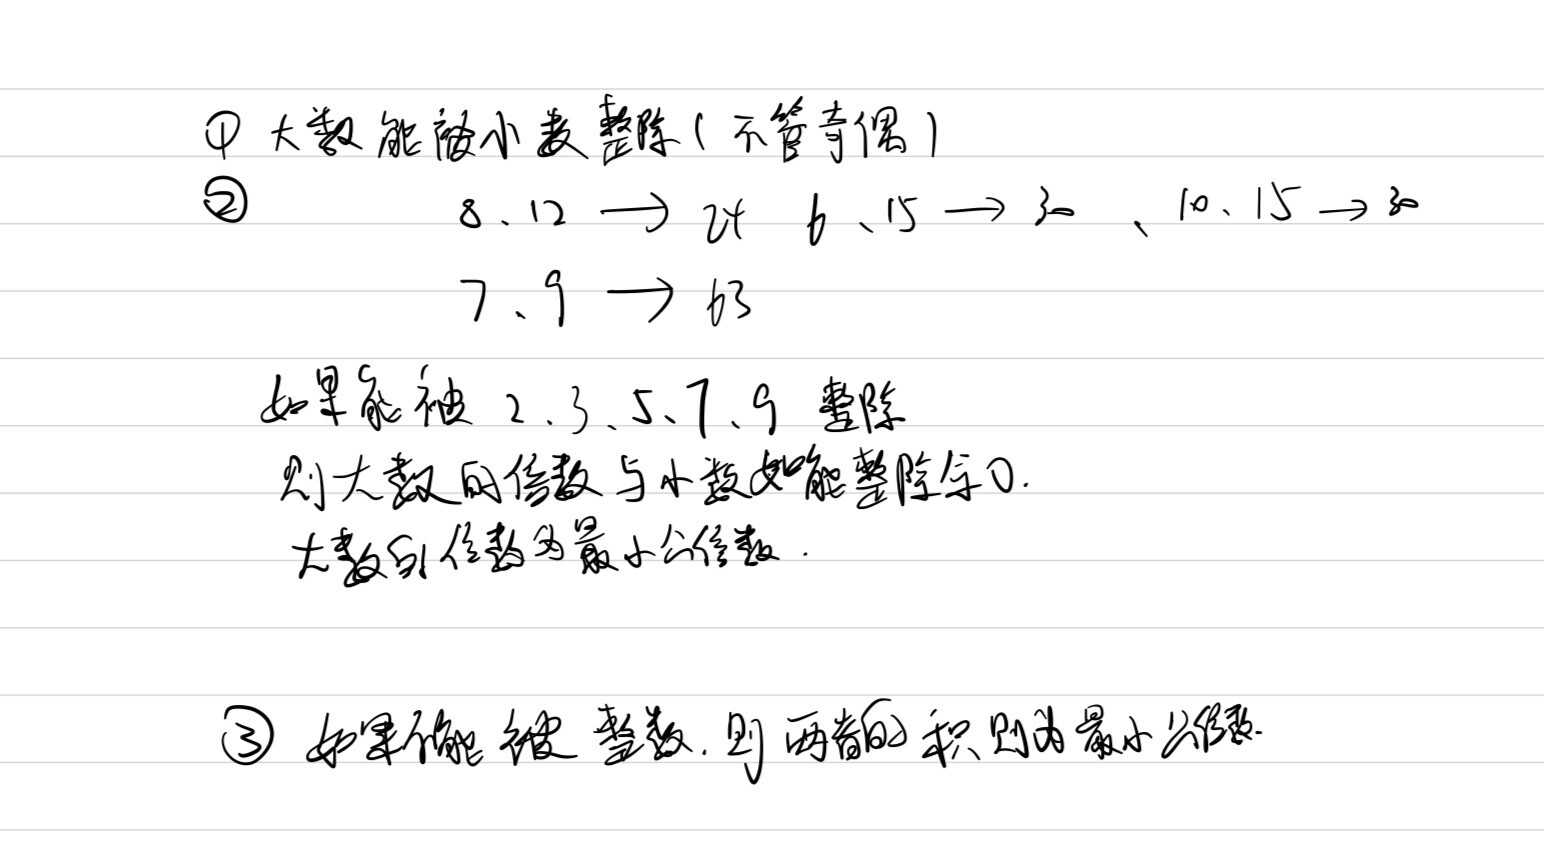 ① 大数能被小数整除(不管奇偶)
② 8、12 → 24 6、15 → 30 、10、15 → 30
7、9 → 63
如果能被 2、3、5、7、9 整除
则大数的倍数与小数如能整除余0.
大数的倍数为最小公倍数.
③ 如果不能被整数.则两者的积则为最小公倍数.